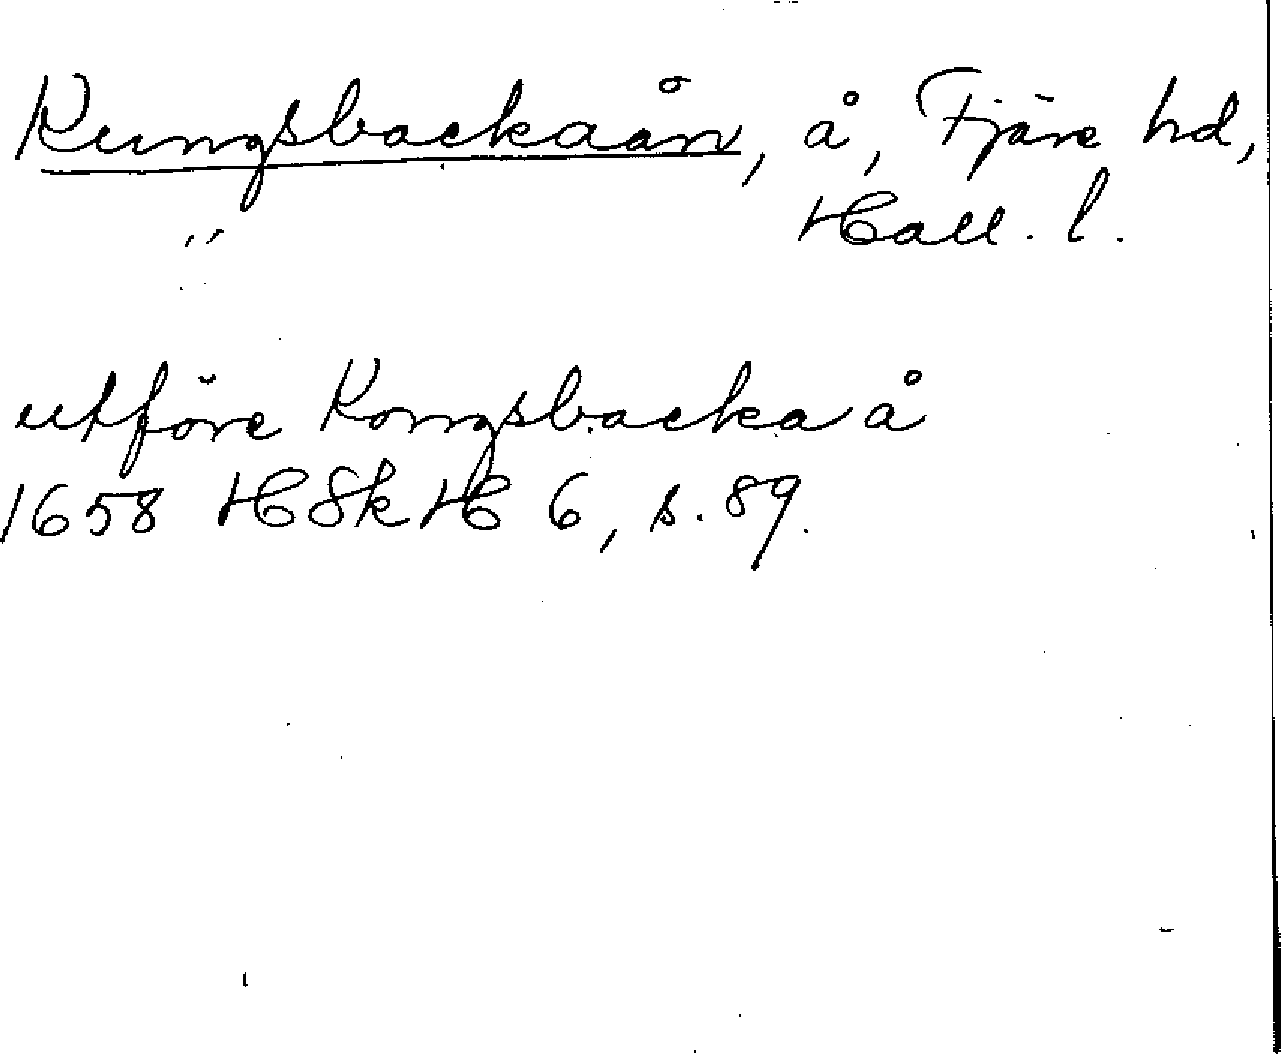 Kungsbackaån, å, Fjäre hd,
" Hall. l.
utföre Kongsbacka å
1658 HSkH 6, s. 89.